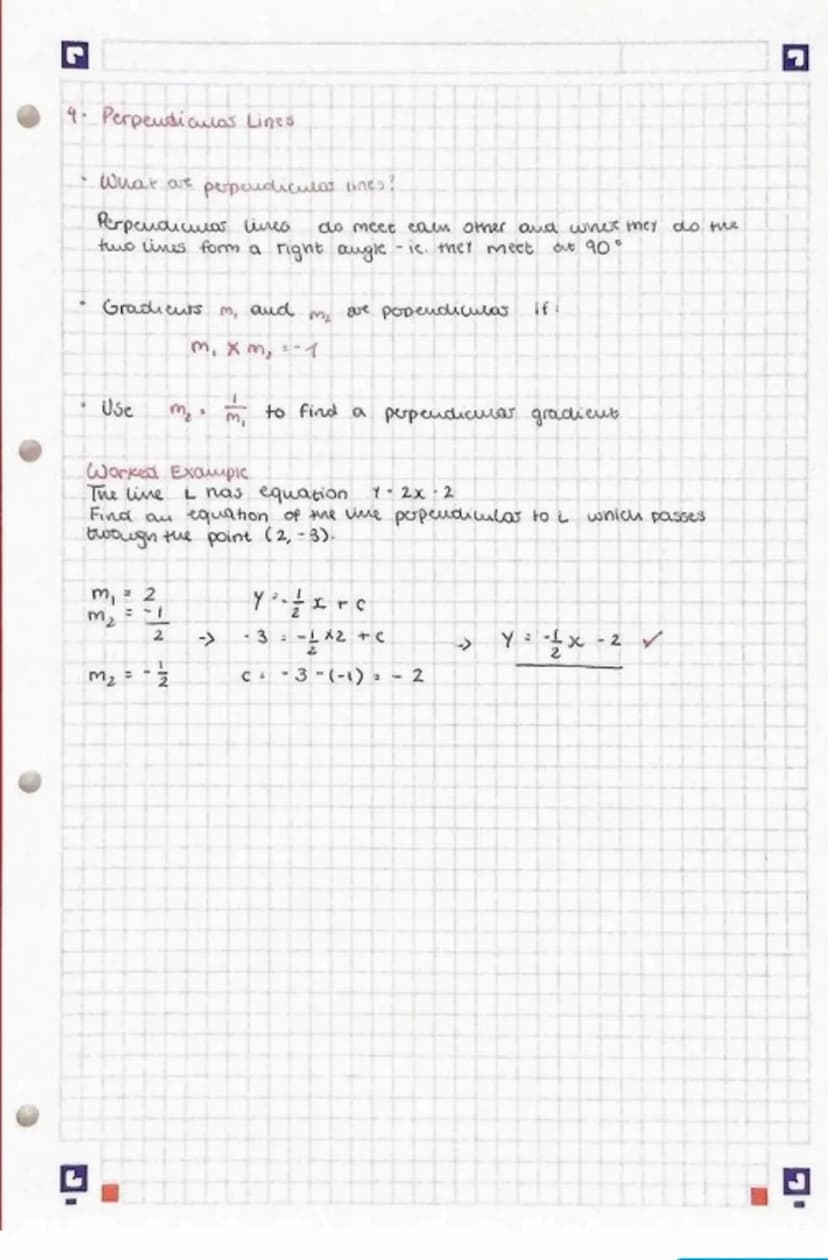 4. Perpendicular Lines
• What are perpendicular lines?
Perpendicular lines do meet each other and when they do the
two lines form a right angle - ie. they meet at 90°
• Gradients m₁ and m₂ are perpendicular if:
m₁ × m₂ = -1
• Use m₂ = 1/m₁ to find a perpendicular gradient
Worked Example
The line L has equation y = 2x - 2
Find an equation of the line perpendicular to L which passes
through the point (2, -3).
m₁ = 2
m₂ = -1/2
m₂ = -1/2
-> y = -1/2 x + c
-3 = -1/2 × 2 + c
c = -3 - (-1) = -2
-> y = -1/2 x - 2 ✓